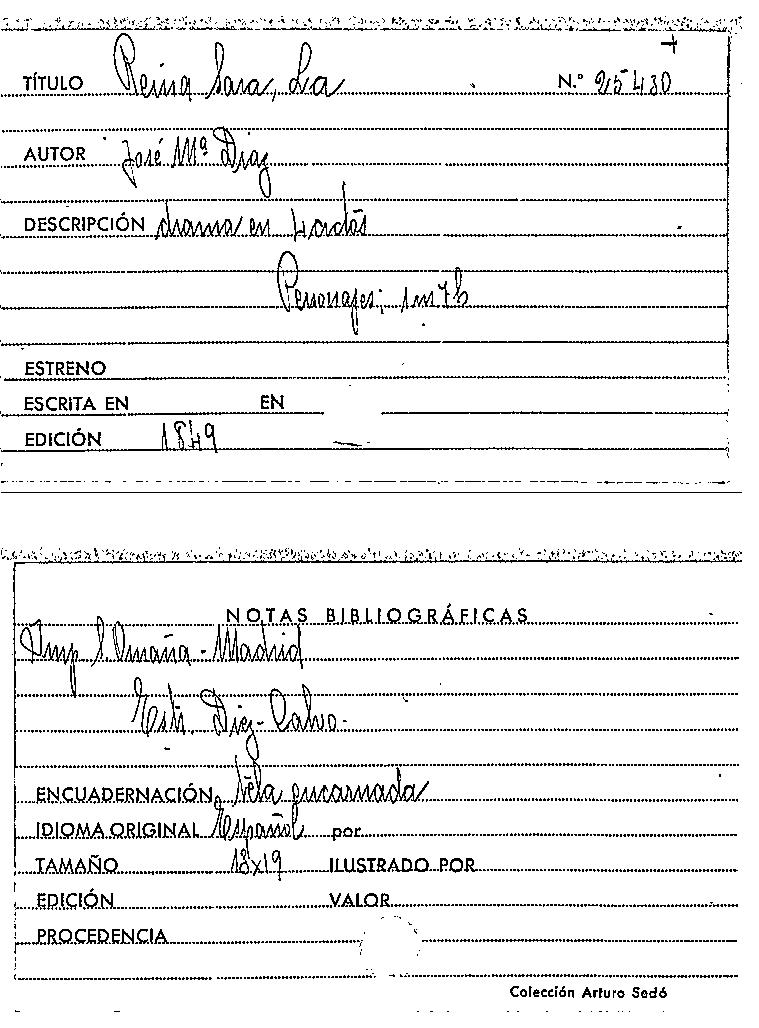 TÍTULO Reina Sara, La N.º 25430
AUTOR José Mª Diaz
DESCRIPCIÓN drama en 4 actos
Personajes: 1m 7h
ESTRENO
ESCRITA EN EN
EDICIÓN 1849
NOTAS BIBLIOGRÁFICAS
Imp S. Omaña - Madrid
Diez - Calvo -
ENCUADERNACIÓN tela encarnada
IDIOMA ORIGINAL Español por
TAMAÑO 13x19 ILUSTRADO POR
EDICIÓN VALOR
PROCEDENCIA
Colección Arturo Sedó